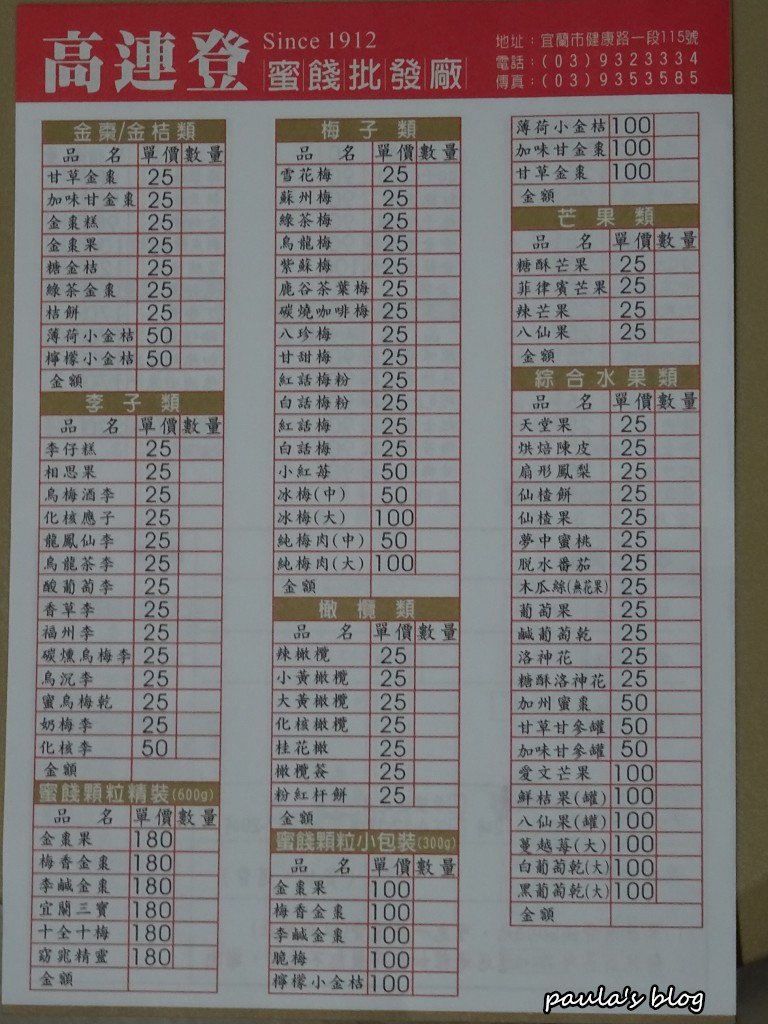 高連登 Since 1912
蜜餞批發廠
地址：宜蘭市健康路一段115號
電話：(03)9323334
傳真：(03)9353585
金棗/金桔類
品 名 單價 數量
甘草金棗 25
加味甘金棗 25
金棗糕 25
金棗果 25
糖金桔 25
綠茶金棗 25
桔餅 25
薄荷小金桔 50
檸檬小金桔 50
金額
李子類
品 名 單價 數量
李仔糕 25
相思果 25
烏梅酒李 25
化核應子 25
龍鳳仙李 25
烏龍茶李 25
酸葡萄李 25
香草李 25
福州李 25
碳燻烏梅李 25
烏沉李 25
蜜烏梅乾 25
奶梅李 25
化核李 50
金額
蜜餞顆粒精裝(600g)
品 名 單價 數量
金棗果 180
梅香金棗 180
李鹹金棗 180
宜蘭三寶 180
十全十梅 180
窈窕精靈 180
金額
梅子類
品 名 單價 數量
雪花梅 25
蘇州梅 25
綠茶梅 25
烏龍梅 25
紫蘇梅 25
鹿谷茶葉梅 25
碳燒咖啡梅 25
八珍梅 25
甘甜梅 25
紅話梅粉 25
白話梅粉 25
紅話梅 25
白話梅 25
小紅莓 50
冰梅(中) 50
冰梅(大) 100
純梅肉(中) 50
純梅肉(大) 100
金額
橄欖類
品 名 單價 數量
辣橄欖 25
小黃橄欖 25
大黃橄欖 25
化核橄欖 25
桂花橄 25
橄欖簽 25
粉紅杆餅 25
金額
蜜餞顆粒小包裝(300g)
品 名 單價 數量
金棗果 100
梅香金棗 100
李鹹金棗 100
脆梅 100
檸檬小金桔 100
薄荷小金桔 100
加味甘金棗 100
甘草金棗 100
金額
芒果類
品 名 單價 數量
糖酥芒果 25
菲律賓芒果 25
辣芒果 25
八仙果 25
金額
綜合水果類
品 名 單價 數量
天堂果 25
烘焙陳皮 25
扇形鳳梨 25
仙楂餅 25
仙楂果 25
夢中蜜桃 25
脫水番茄 25
木瓜絲(無花果) 25
葡萄果 25
鹹葡萄乾 25
洛神花 25
糖酥洛神花 25
加州蜜棗 50
甘草甘參罐 50
加味甘參罐 50
愛文芒果 100
鮮桔果(罐) 100
八仙果(罐) 100
蔓越莓(大) 100
白葡萄乾(大) 100
黑葡萄乾(大) 100
金額
paula's blog